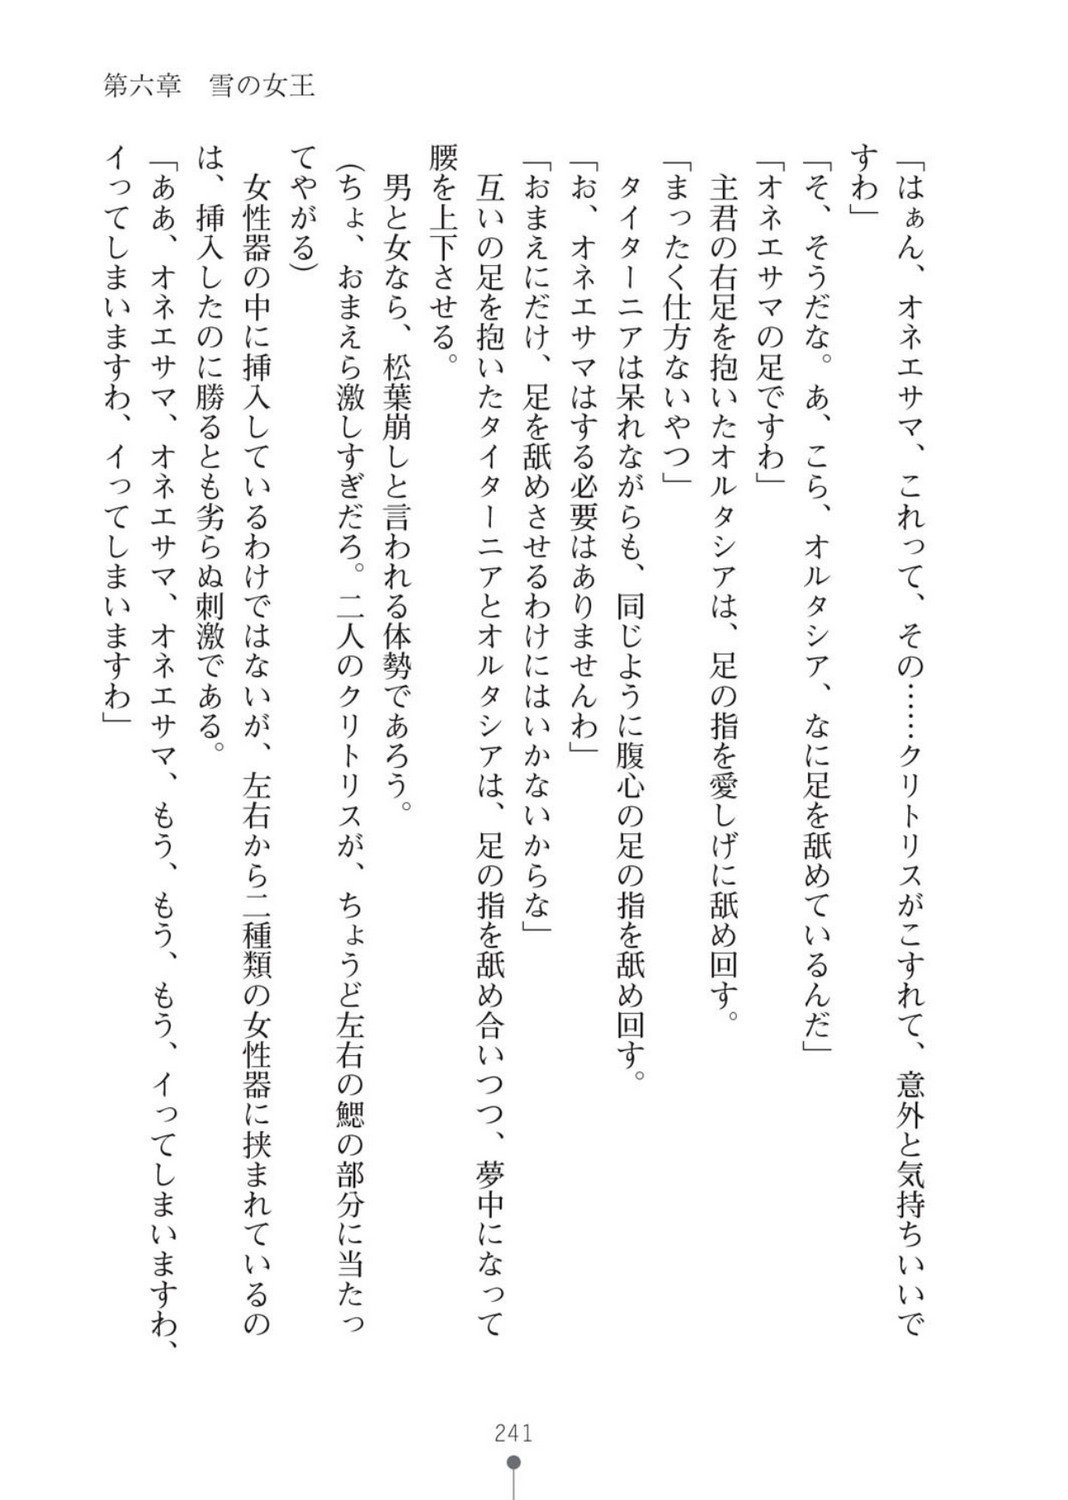 第六章　雪の女王
「はぁん、オネエサマ、これって、その……クリトリスがこすれて、意外と気持ちいいで
すわ」
「そ、そうだな。あ、こら、オルタシア、なに足を舐めているんだ」
「オネエサマの足ですわ」
　主君の右足を抱いたオルタシアは、足の指を愛しげに舐め回す。
「まったく仕方ないやつ」
　タイターニアは呆れながらも、同じように腹心の足の指を舐め回す。
「お、オネエサマはする必要はありませんわ」
「おまえにだけ、足を舐めさせるわけにはいかないからな」
　互いの足を抱いたタイターニアとオルタシアは、足の指を舐め合いつつ、夢中になって
腰を上下させる。
　男と女なら、松葉崩しと言われる体勢であろう。
（ちょ、おまえら激しすぎだろ。二人のクリトリスが、ちょうど左右の鰓の部分に当たっ
てやがる）
　女性器の中に挿入しているわけではないが、左右から二種類の女性器に挟まれているの
は、挿入したのに勝るとも劣らぬ刺激である。
「ああ、オネエサマ、オネエサマ、オネエサマ、もう、もう、もう、イってしまいますわ、
イってしまいますわ、イってしまいますわ」
241